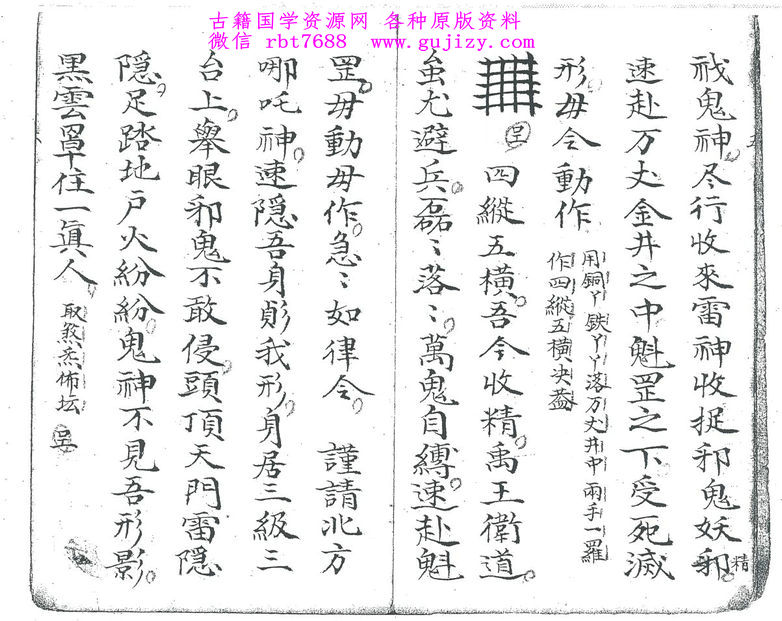 古籍国学资源网 各种原版资料
微信 rbt7688 www.gujizy.com
戝鬼神尽行收來雷神收捉邪鬼妖邪精
速赴万丈金井之中魁罡之下受死滅
形毋令動作
用銅丫鉄丫丫落万丈井中兩手一羅
作四縱五橫决蓋
四縱五橫吾今收精禹王衛道
蚩尤避兵磊〻落〻萬鬼自縛速赴魁
罡毋動毋作急〻如律令 謹請北方
哪吒神速隱吾身 我形身居三級三
台上舉眼邪鬼不敢侵頭頂天門雷隱
隱足踏地戶火紛紛鬼神不見吾形影
黑雲罩住一真人
取煞炁佈坛